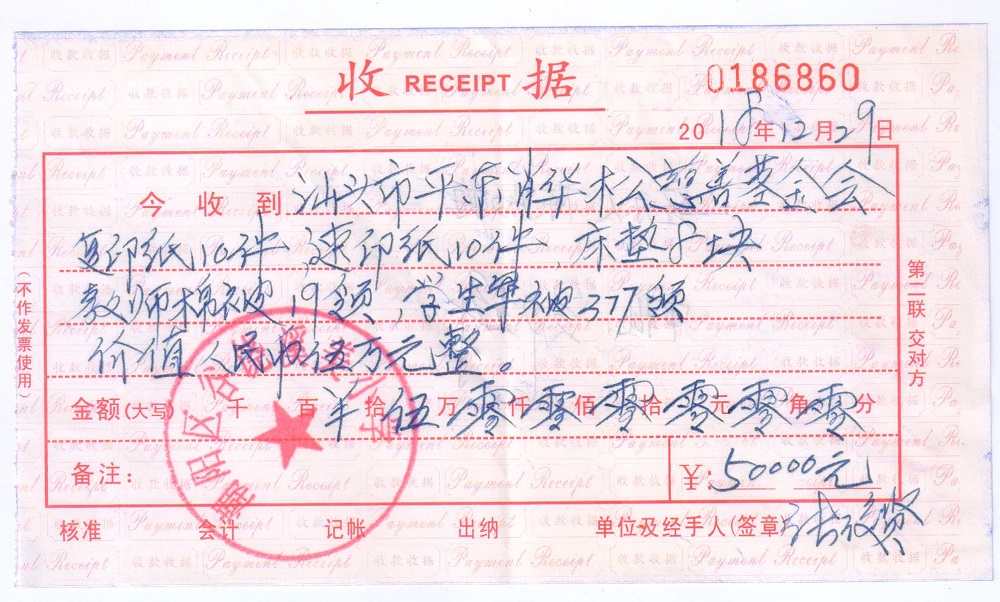 收 RECEIPT 据
0186860
2018年12月29日
今收到 汕头市平东肖华松慈善基金会
复印纸10件,速印纸10件,床垫8块
教师棉被19领,学生军被377领
价值人民币伍万元整。
金额(大写) 千 百 半 拾 伍 万 零 仟 零 佰 零 拾 零 元 零 角 零 分
备注:
¥:50000元
核准 会计 记帐 出纳 单位及经手人(签章)
(不作发票使用)
第二联 交对方